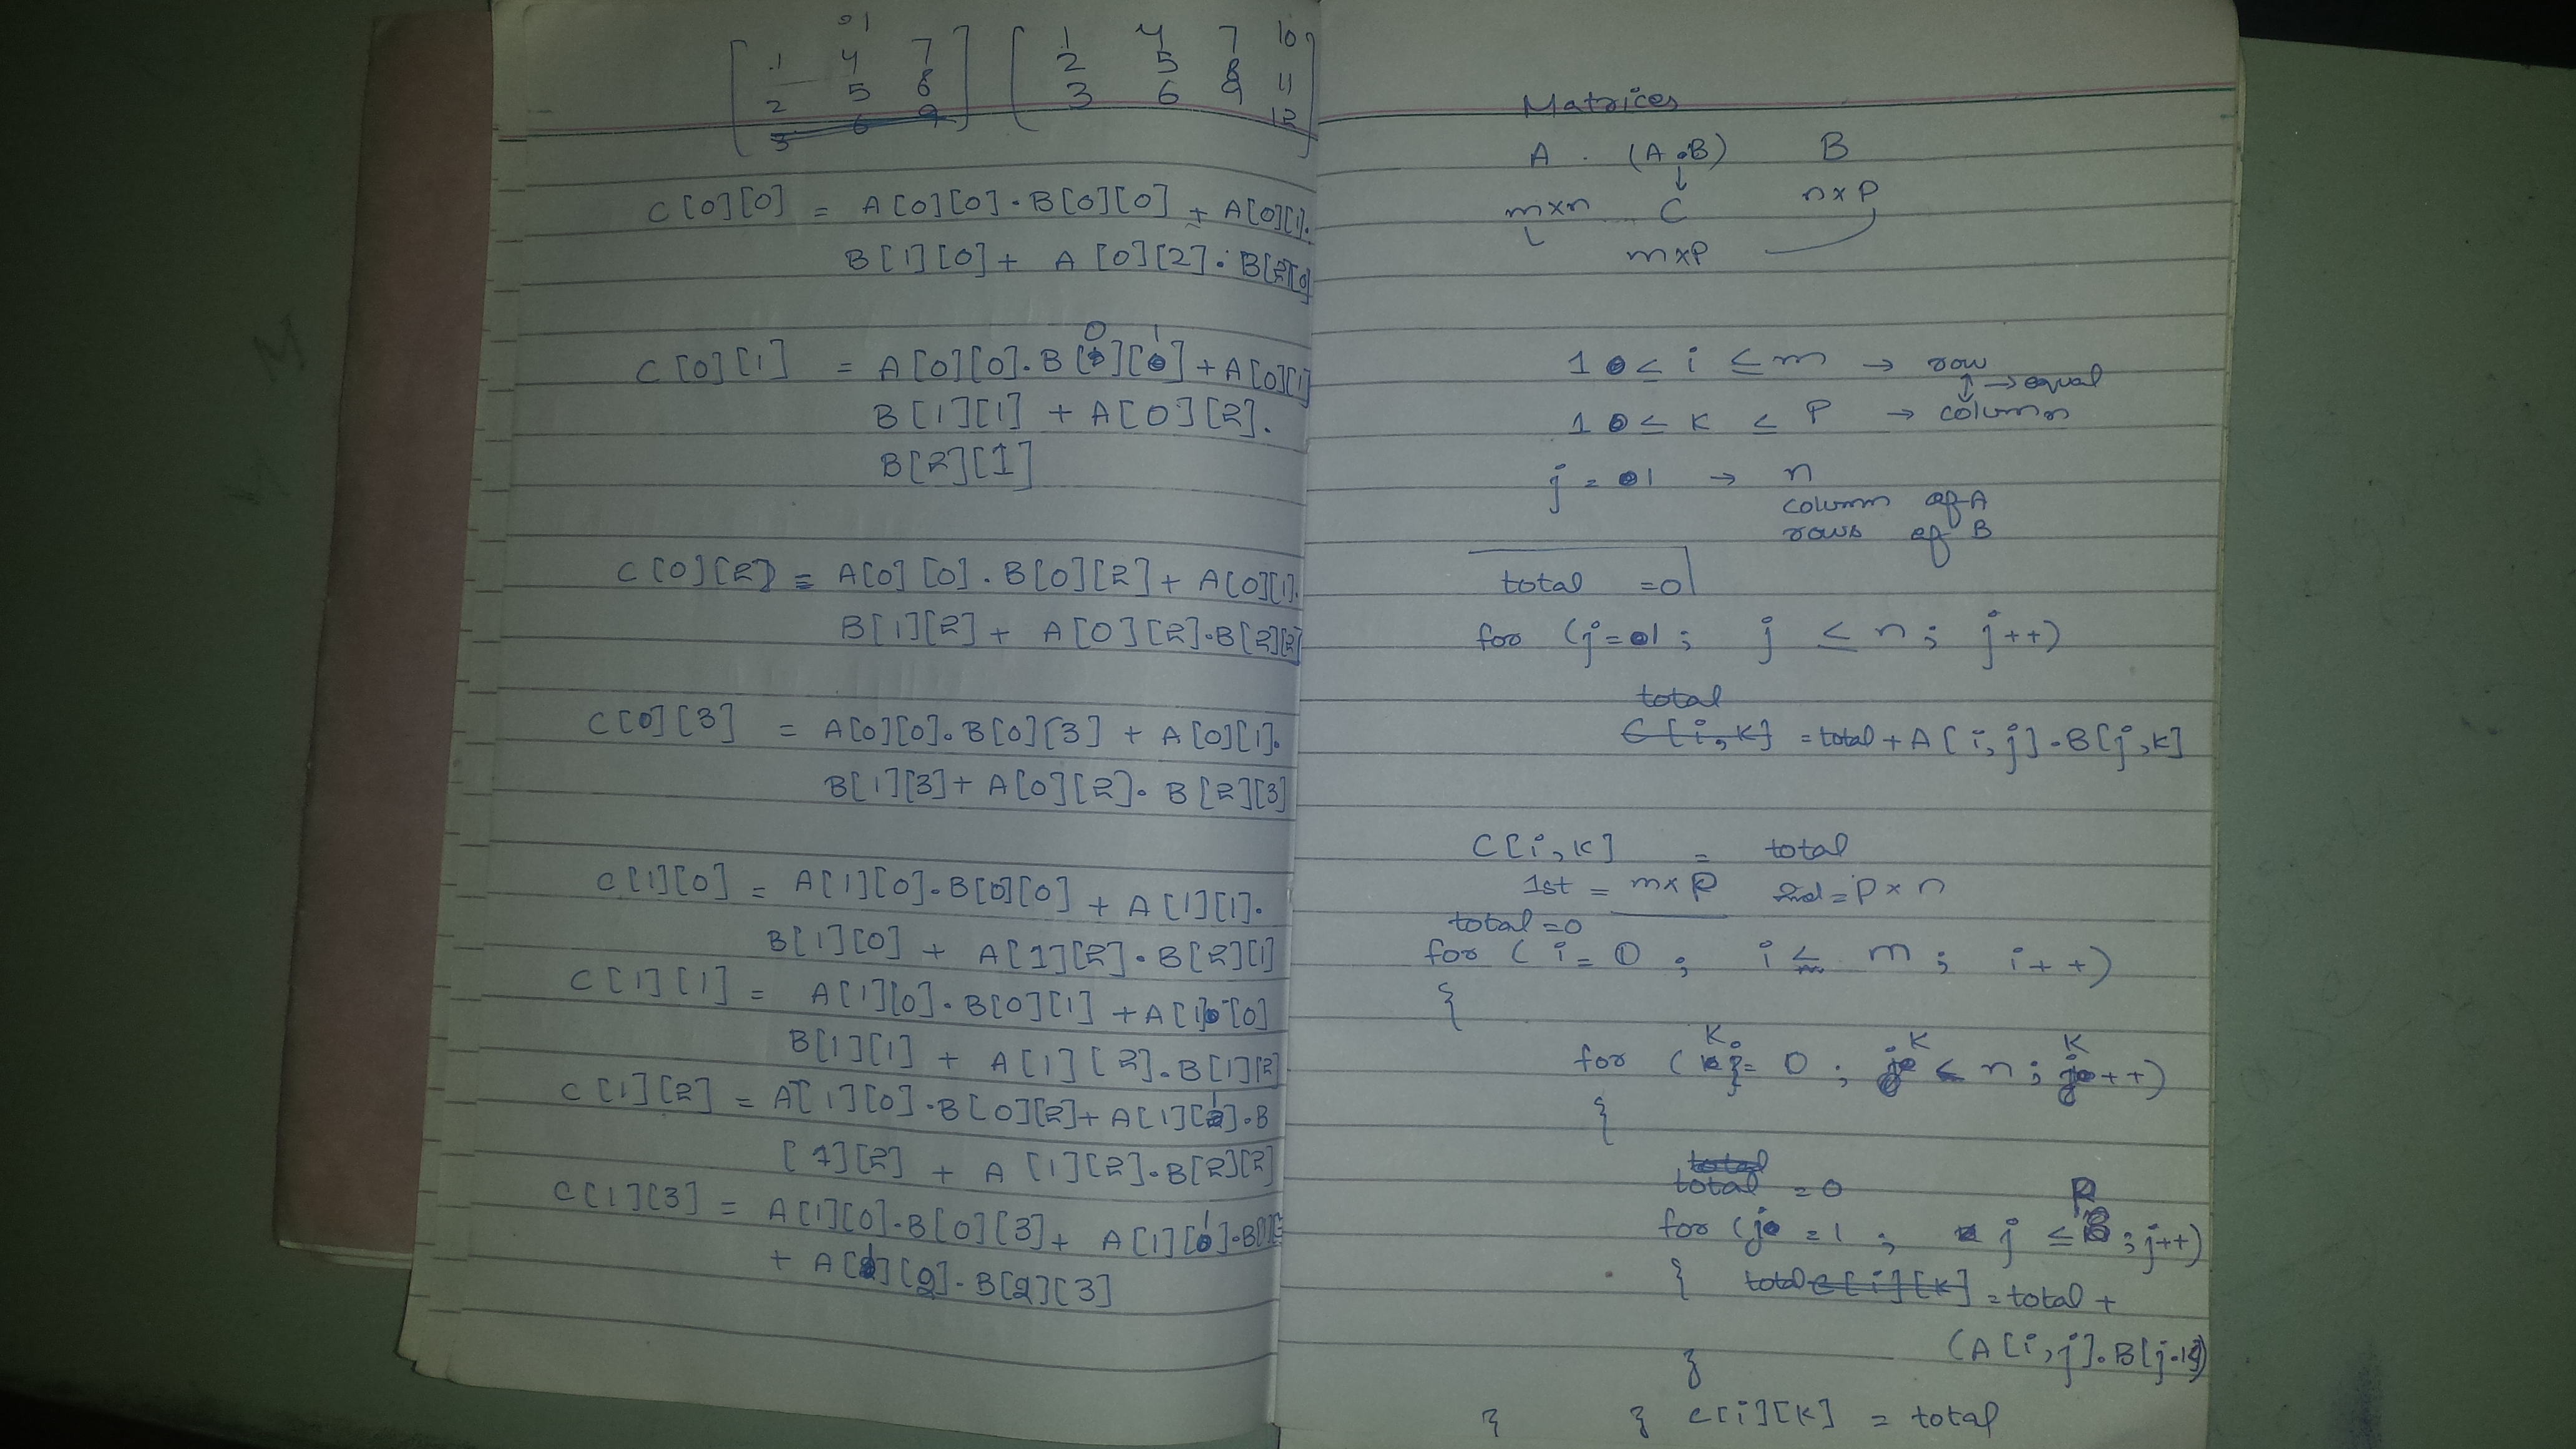 0 1
1 4 7 1 4 7 10
2 5 8 2 5 8 11
3 6 9 3 6 9 12
C[0][0] = A[0][0].B[0][0] + A[0][1].
B[1][0] + A[0][2].B[2][0]
0 1
C[0][1] = A[0][0].B[ ][ ] + A[0][1]
B[1][1] + A[0][2].
B[2][1]
C[0][2] = A[0][0].B[0][2] + A[0][1].
B[1][2] + A[0][2].B[2][2]
C[0][3] = A[0][0].B[0][3] + A[0][1].
B[1][3] + A[0][2].B[2][3]
C[1][0] = A[1][0].B[0][0] + A[1][1].
B[1][0] + A[1][2].B[2][1]
C[1][1] = A[1][0].B[0][1] + A[1][0]
B[1][1] + A[1][2].B[1][2]
C[1][2] = A[1][0].B[0][2] + A[1][1].B
[1][2] + A[1][2].B[2][2]
C[1][3] = A[1][0].B[0][3] + A[1][1].B
+ A[1][2].B[2][3]
Matrices
A . (A.B) B
↓
m×n C n×P
m×P
1 0 ≤ i ≤ m → row
↕ → equal
1 0 ≤ K ≤ P → column
j = 01 → n
column of A
rows of B
total = 0
for (j=01; j ≤ n; j++)
total
C[i,K] = total + A[i,j].B[j,K]
C[i,K] = total
1st = m×P 2nd = P×n
total = 0
for ( i = 0 ; i ≤ m ; i++)
{
K K K
for ( = 0 ; < n ; ++)
{
total
total = 0
P
for (j = 1 ; j ≤ ; j++)
{ total C[i][K] = total +
(A[i,j].B[j.K])
}
} } C[i][K] = total